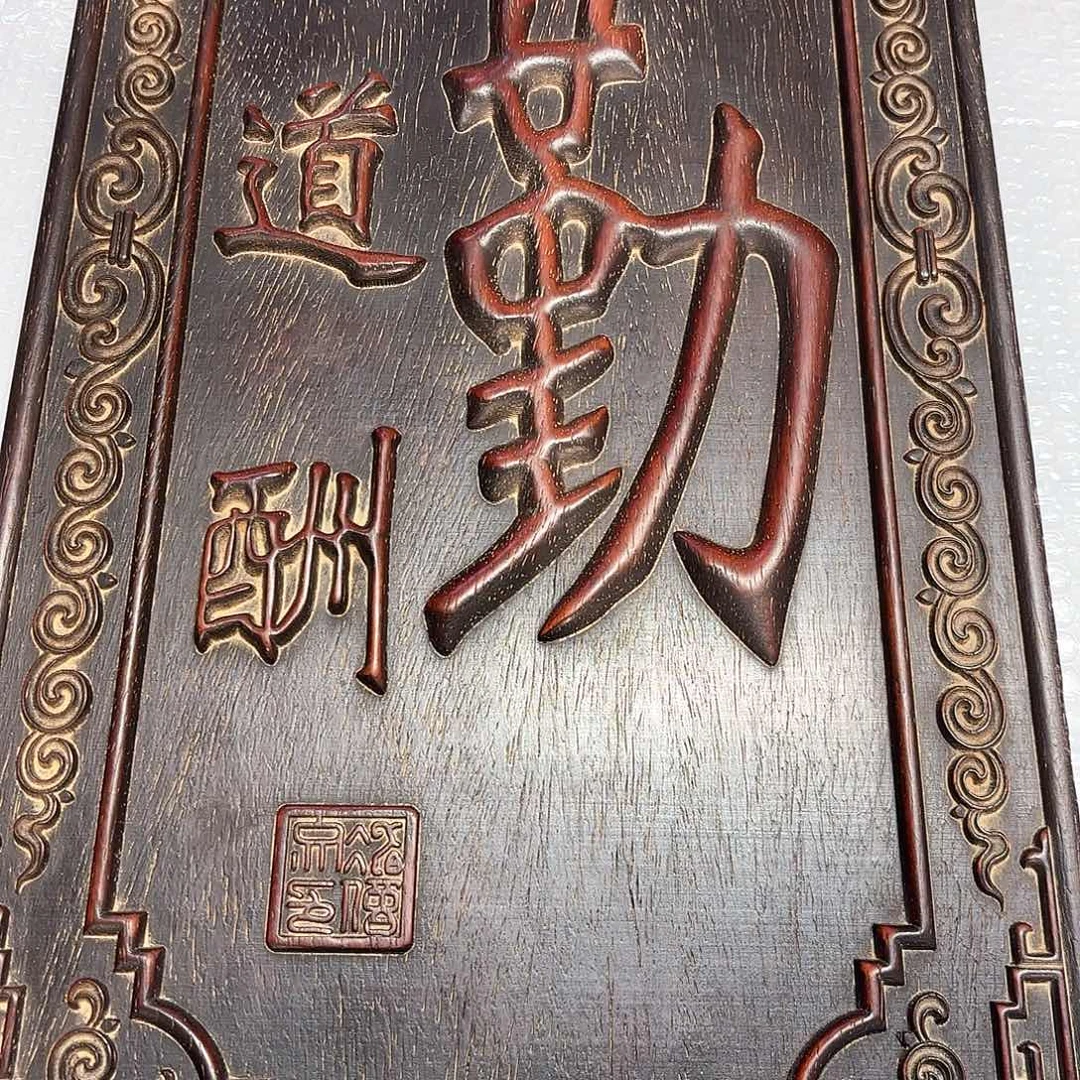 勤
道酬